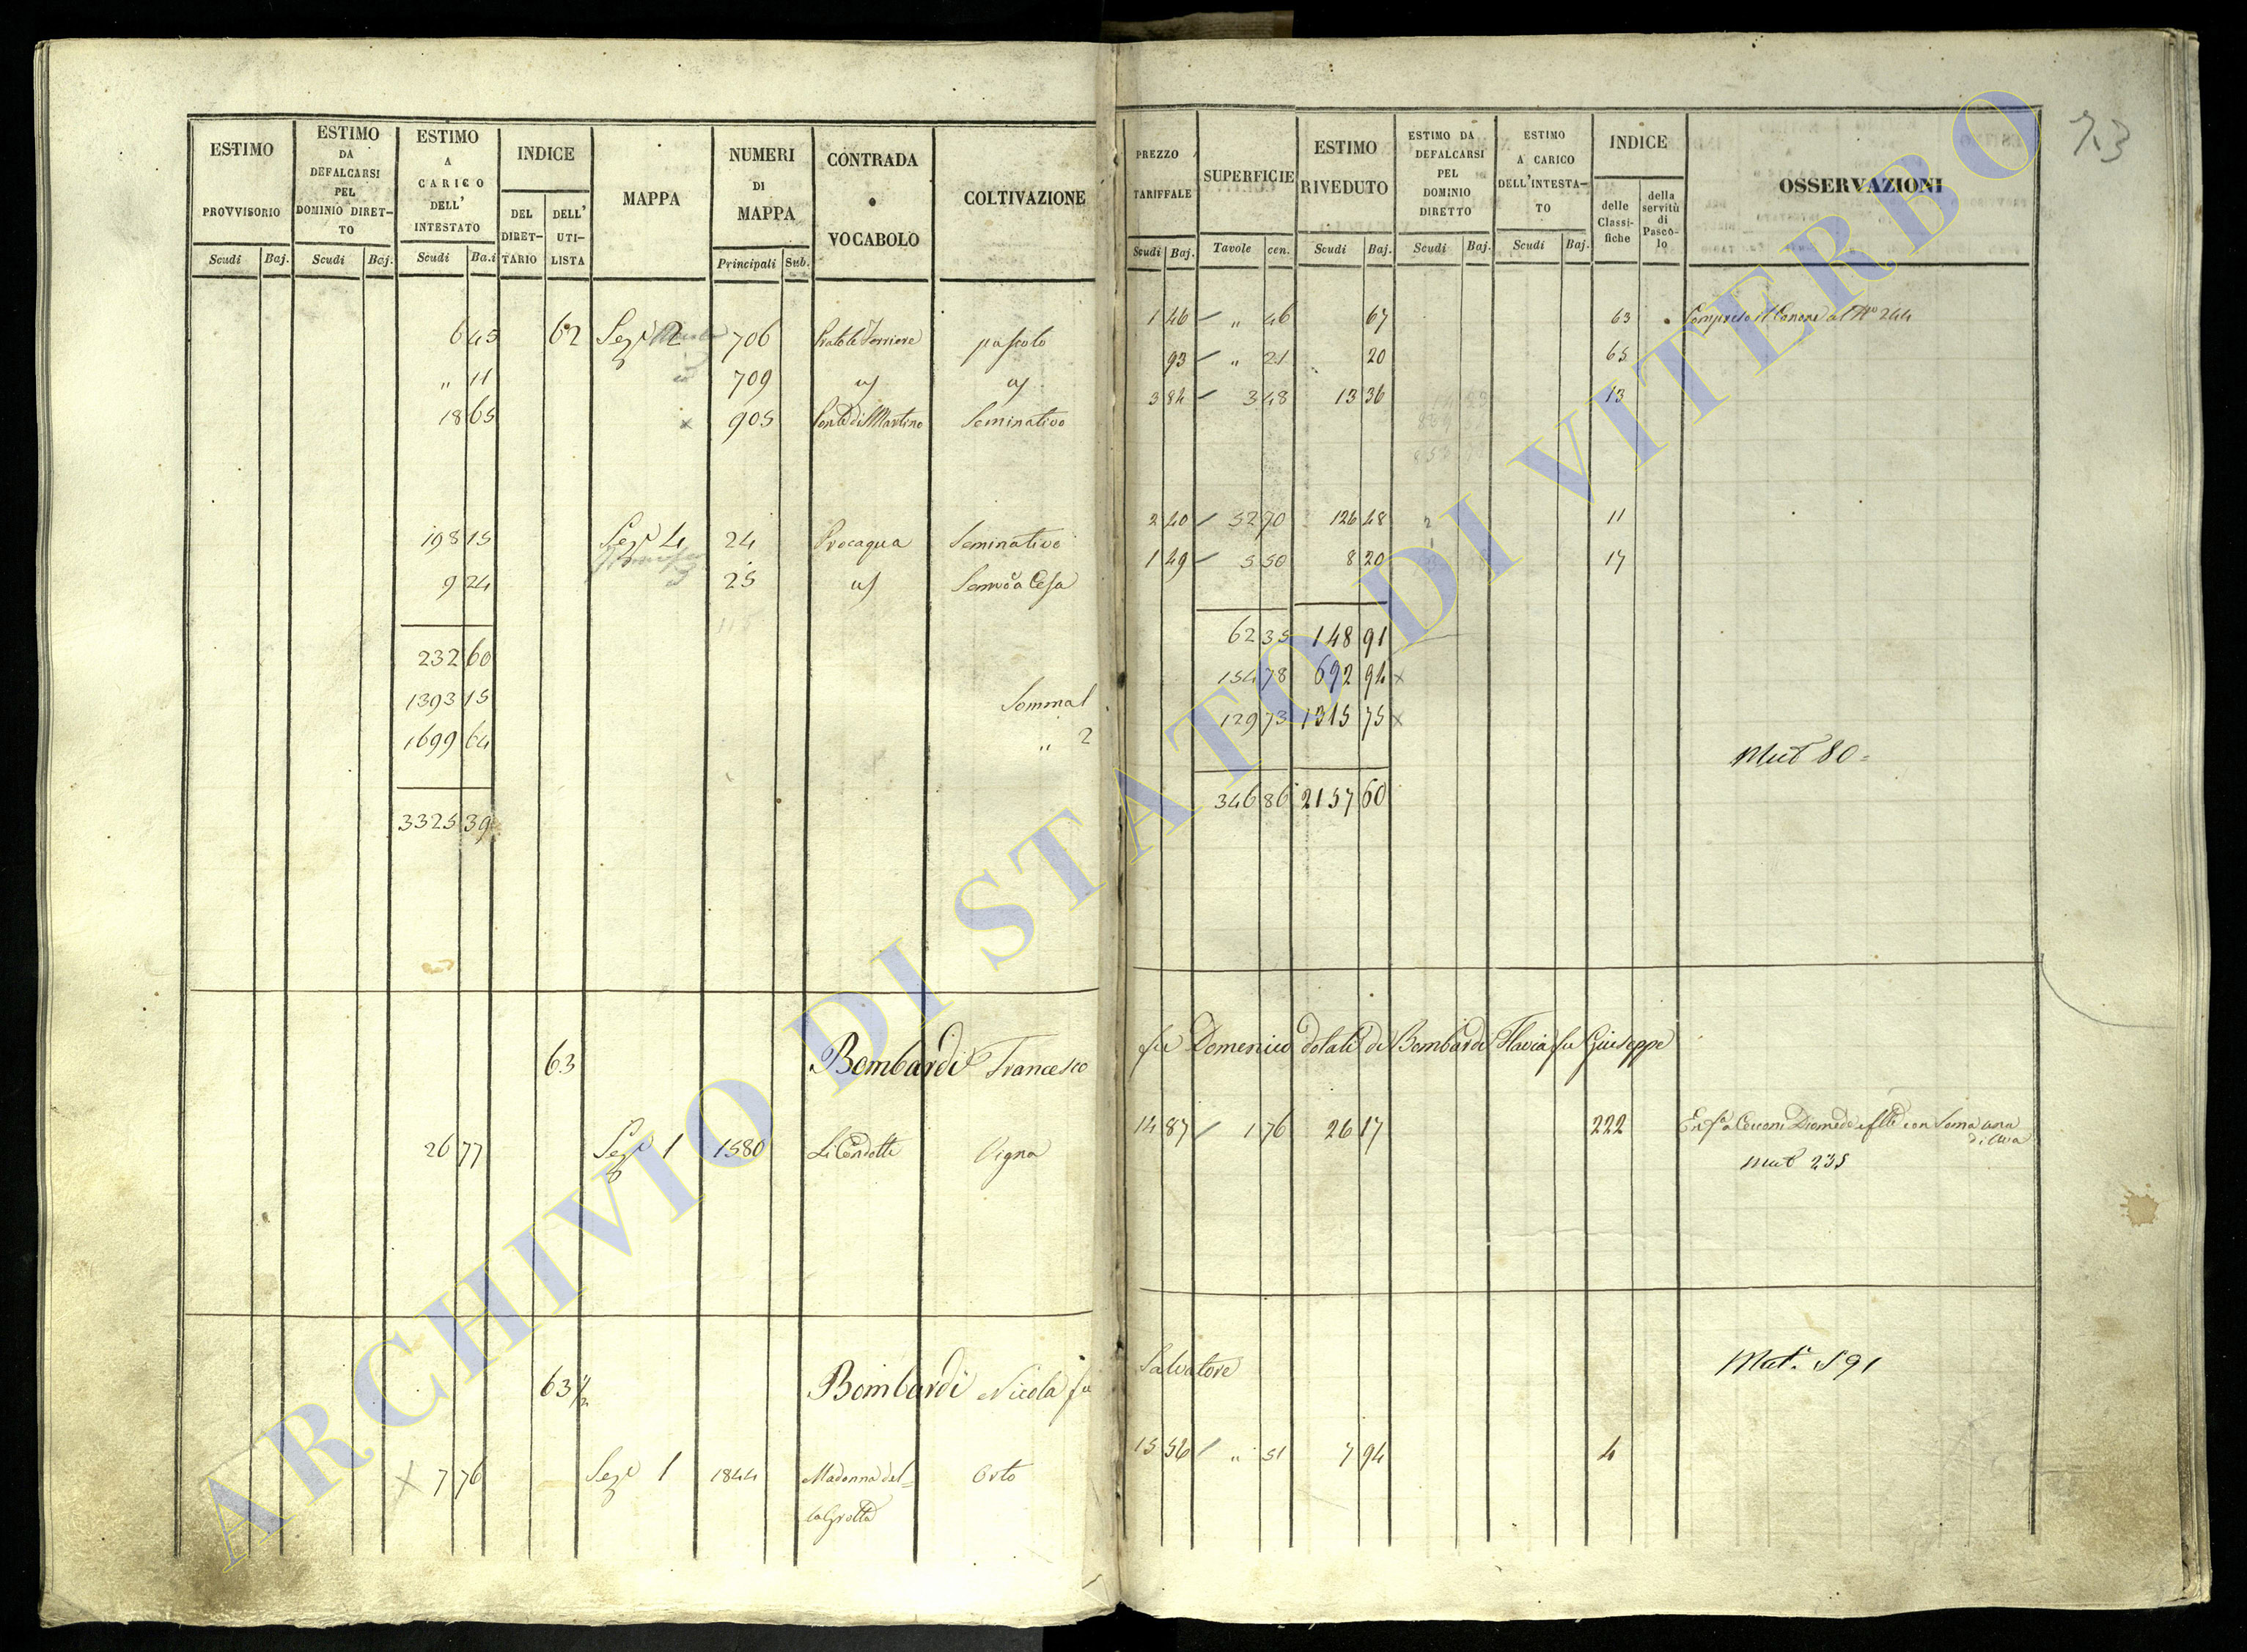 ESTIMO PROVVISORIO Scudi Baj.
ESTIMO DA DEFALCARSI PEL DOMINIO DIRET-TO Scudi Baj.
ESTIMO A CARICO DELL' INTESTATO Scudi Ba.i
INDICE DEL DIRET-TARIO DELL' UTI-LISTA
MAPPA
NUMERI DI MAPPA Principali Sub.
CONTRADA o VOCABOLO
COLTIVAZIONE
6 45 62 Sez.e 2 706 pascolo
" 11 709
18 65 × 905 Ponte di S Martino Seminativo
198 15 Sez.e 4 24 Procaqua Seminativo
9 24 25
232 60
1393 15 Somma 1
1699 64 " 2
3325 39
63 Bombardi Francesco
26 77 Sez.e 1 1580 Li Condotti Vigna
63 1/2 Bombardi Nicola fu
× 7 76 Sez.e 1 1844 Madonna del= Orto
la Grotta
73
PREZZO TARIFFALE Scudi Baj.
SUPERFICIE Tavole cen.
ESTIMO RIVEDUTO Scudi Baj.
ESTIMO DA DEFALCARSI PEL DOMINIO DIRETTO Scudi Baj.
ESTIMO A CARICO DELL'INTESTA-TO Scudi Baj.
INDICE delle Classi-fiche della servitù di Pasco-lo
OSSERVAZIONI
1 46 " 46 67 63 Compreso il Canone al N° 244
93 " 21 20 65
3 84 3 48 13 36 13
2 40 52 70 126 48 11
1 49 5 50 8 20 17
62 35 148 91
154 78 692 94 ×
129 73 1315 75 ×
Mut 80=
346 86 2157 60
fu Domenico dotali di Bombardi Flavia fu Giuseppe
14 87 1 76 26 17 222
Mut 235
Salvatore
Mat. 591
15 56 " 51 7 94 4
ARCHIVIO DI STATO DI VITERBO